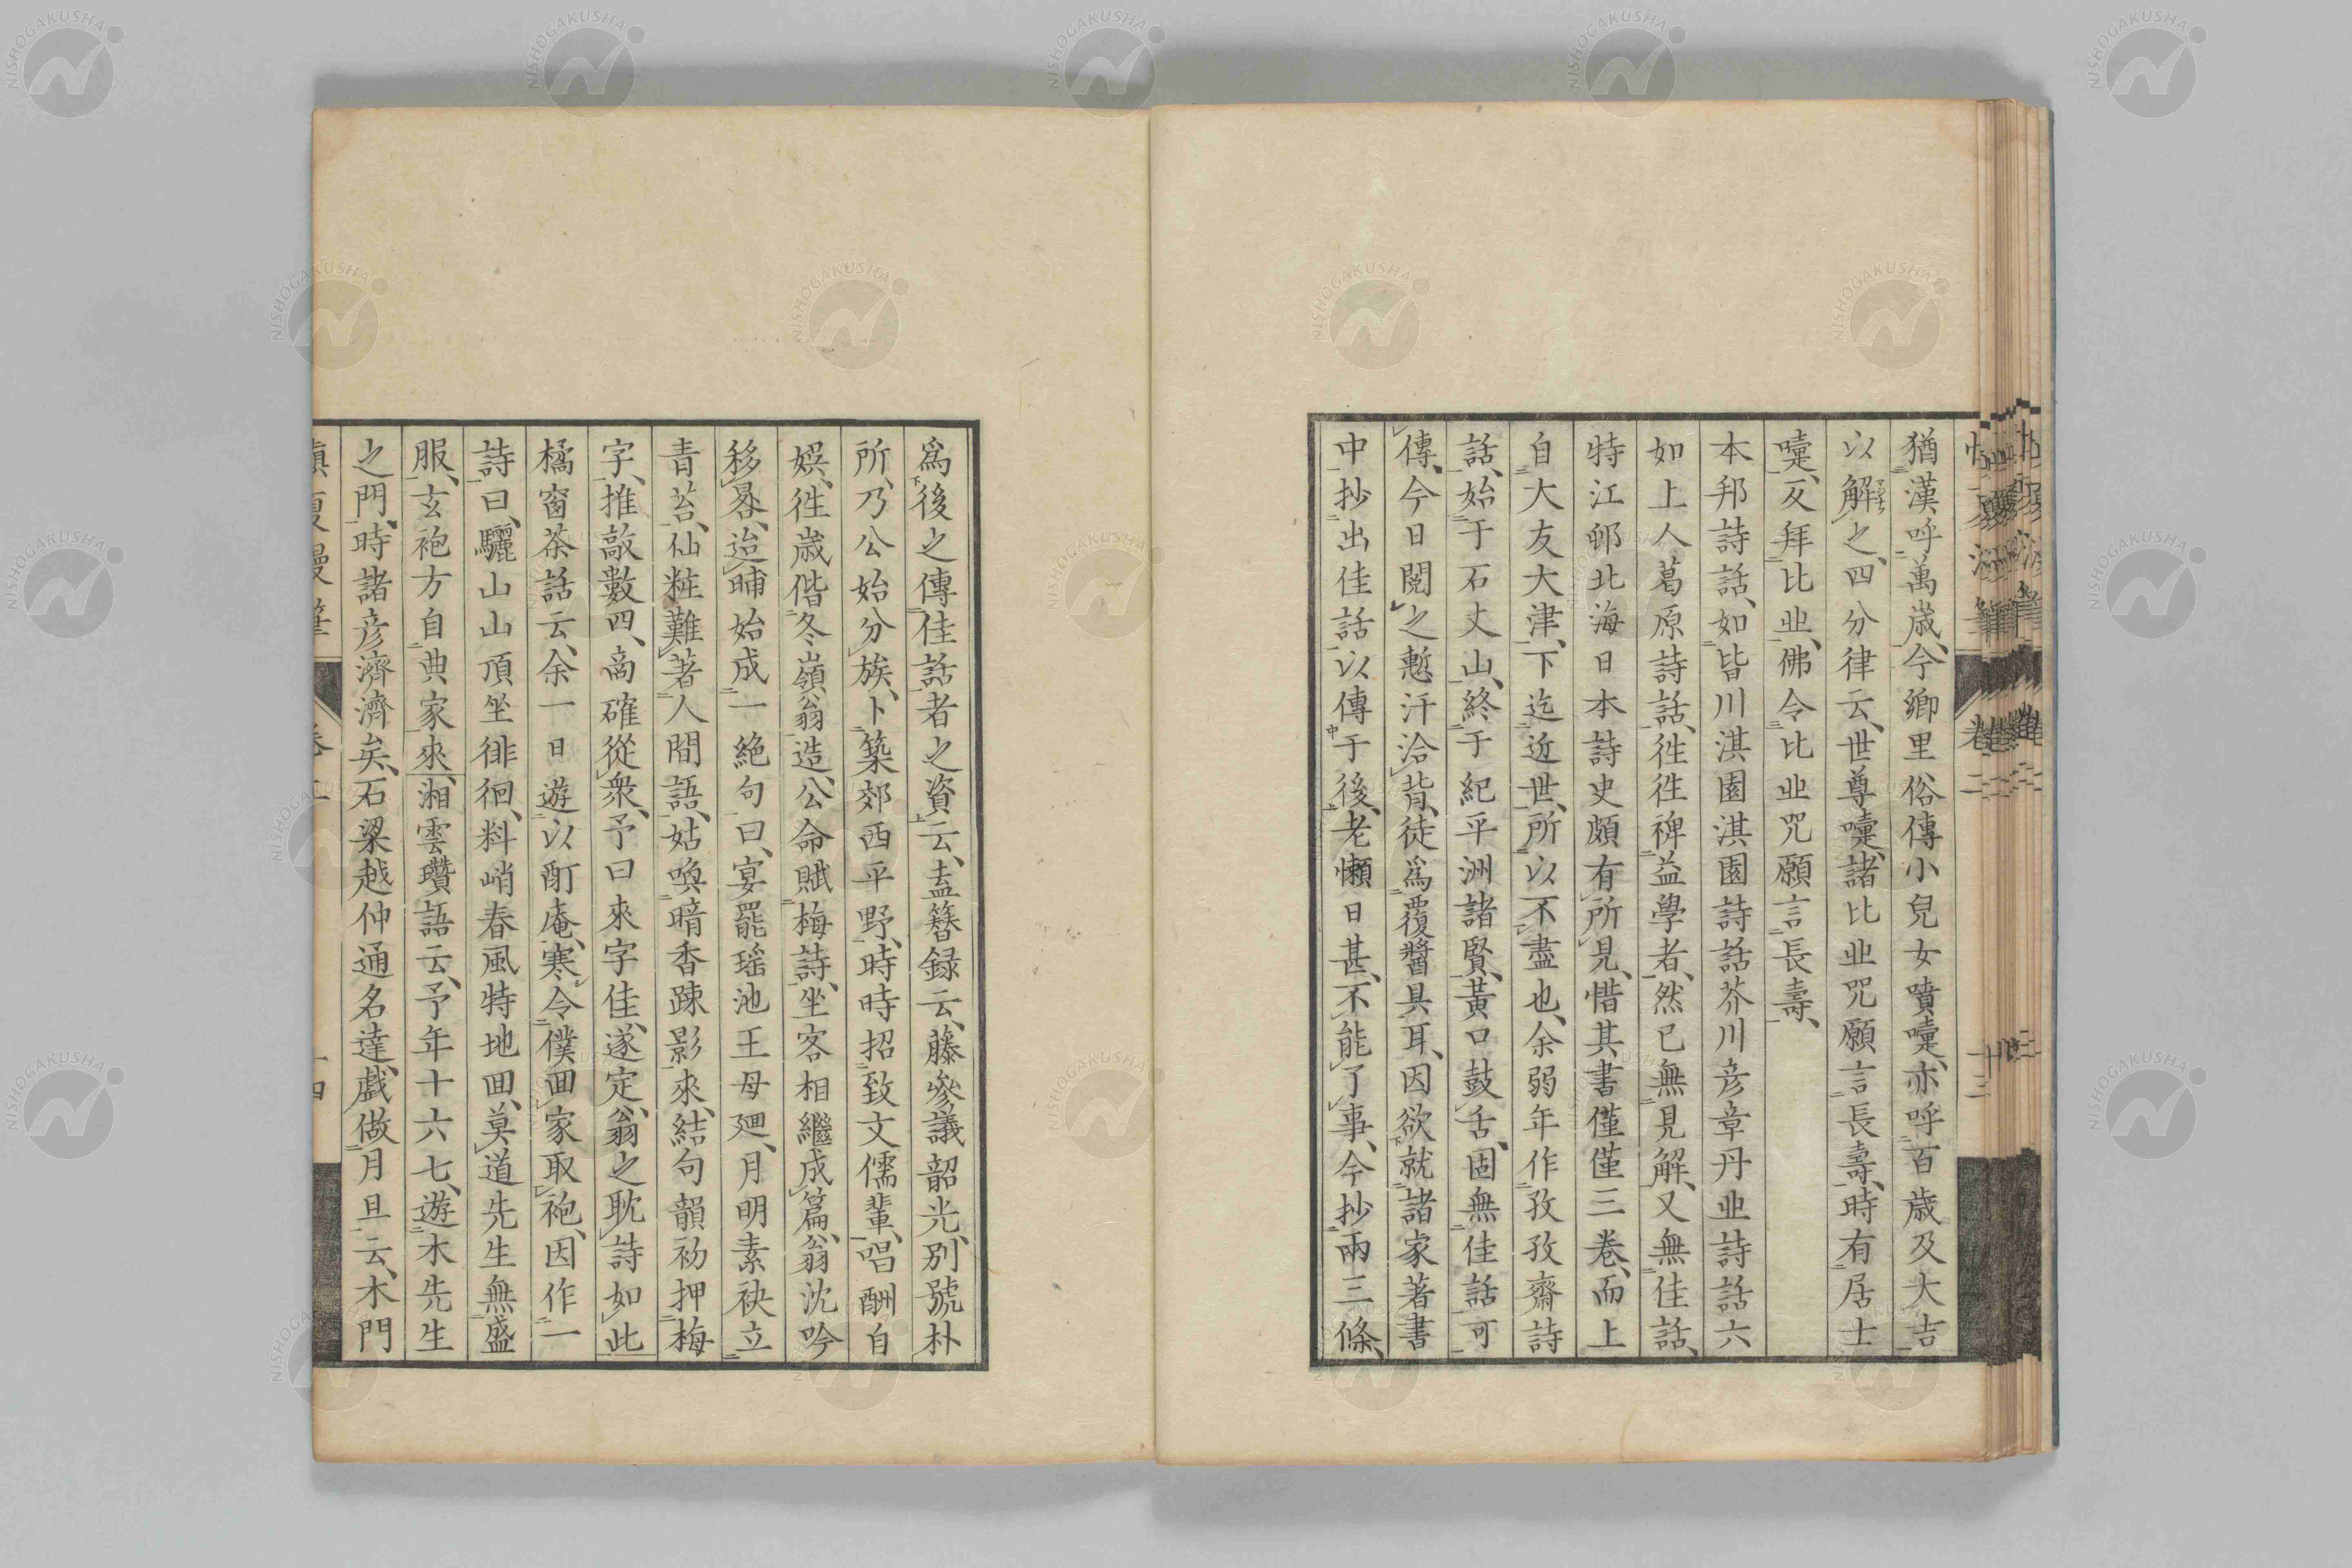 猶漢呼萬歲、今鄉里俗傳小兒女噴嚏、亦呼百歲及大吉
以解之、四分律云、世尊嚏、諸比丘咒願言長壽、時有居士
嚏、反拜比丘、佛令比丘咒願言長壽、
本邦詩話、如皆川淇園淇園詩話芥川彦章丹丘詩話六
如上人葛原詩話、徃徃裨益學者、然已無見解、又無佳話、
特江邨北海日本詩史頗有所見、惜其書僅僅三卷、而上
自大友大津、下迄近世、所以不盡也、余弱年作孜孜齋詩
話、始于石丈山、終于紀平洲諸賢、黃口鼓舌、固無佳話可
傳、今日閱之慙汗洽背、徒爲覆醬具耳、因欲就諸家著書
中抄出佳話以傳于後、老懶日甚、不能了事、今抄兩三條、
爲後之傳佳話者之資云、盍簪録云、藤參議韶光、別號朴
所、乃公始分族、卜築郊西平野、時時招致文儒輩、唱酬自
娛、徃歲偕冬嶺翁造、公命賦梅詩、坐客相繼成篇、翁沈吟
移晷、迨晡始成一絕句曰、宴罷瑤池王母廻、月明素袂立
青苔、仙粧難著人間語、姑喚暗香踈影來、結句韻礽押梅
字、推敲數四、商確從衆、予曰來字佳、遂定、翁之耽詩如此
橘窗茶話云、余一日遊以酊庵、寒令僕回家取袍、因作一
詩曰、驪山山頂坐徘徊、料峭春風特地回、莫道先生無盛
服、玄袍方自典家來、湘雲瓚語云、予年十六七、遊木先生
之門、時諸彦濟濟矣、石梁越仲通名達、戲做月旦云、木門